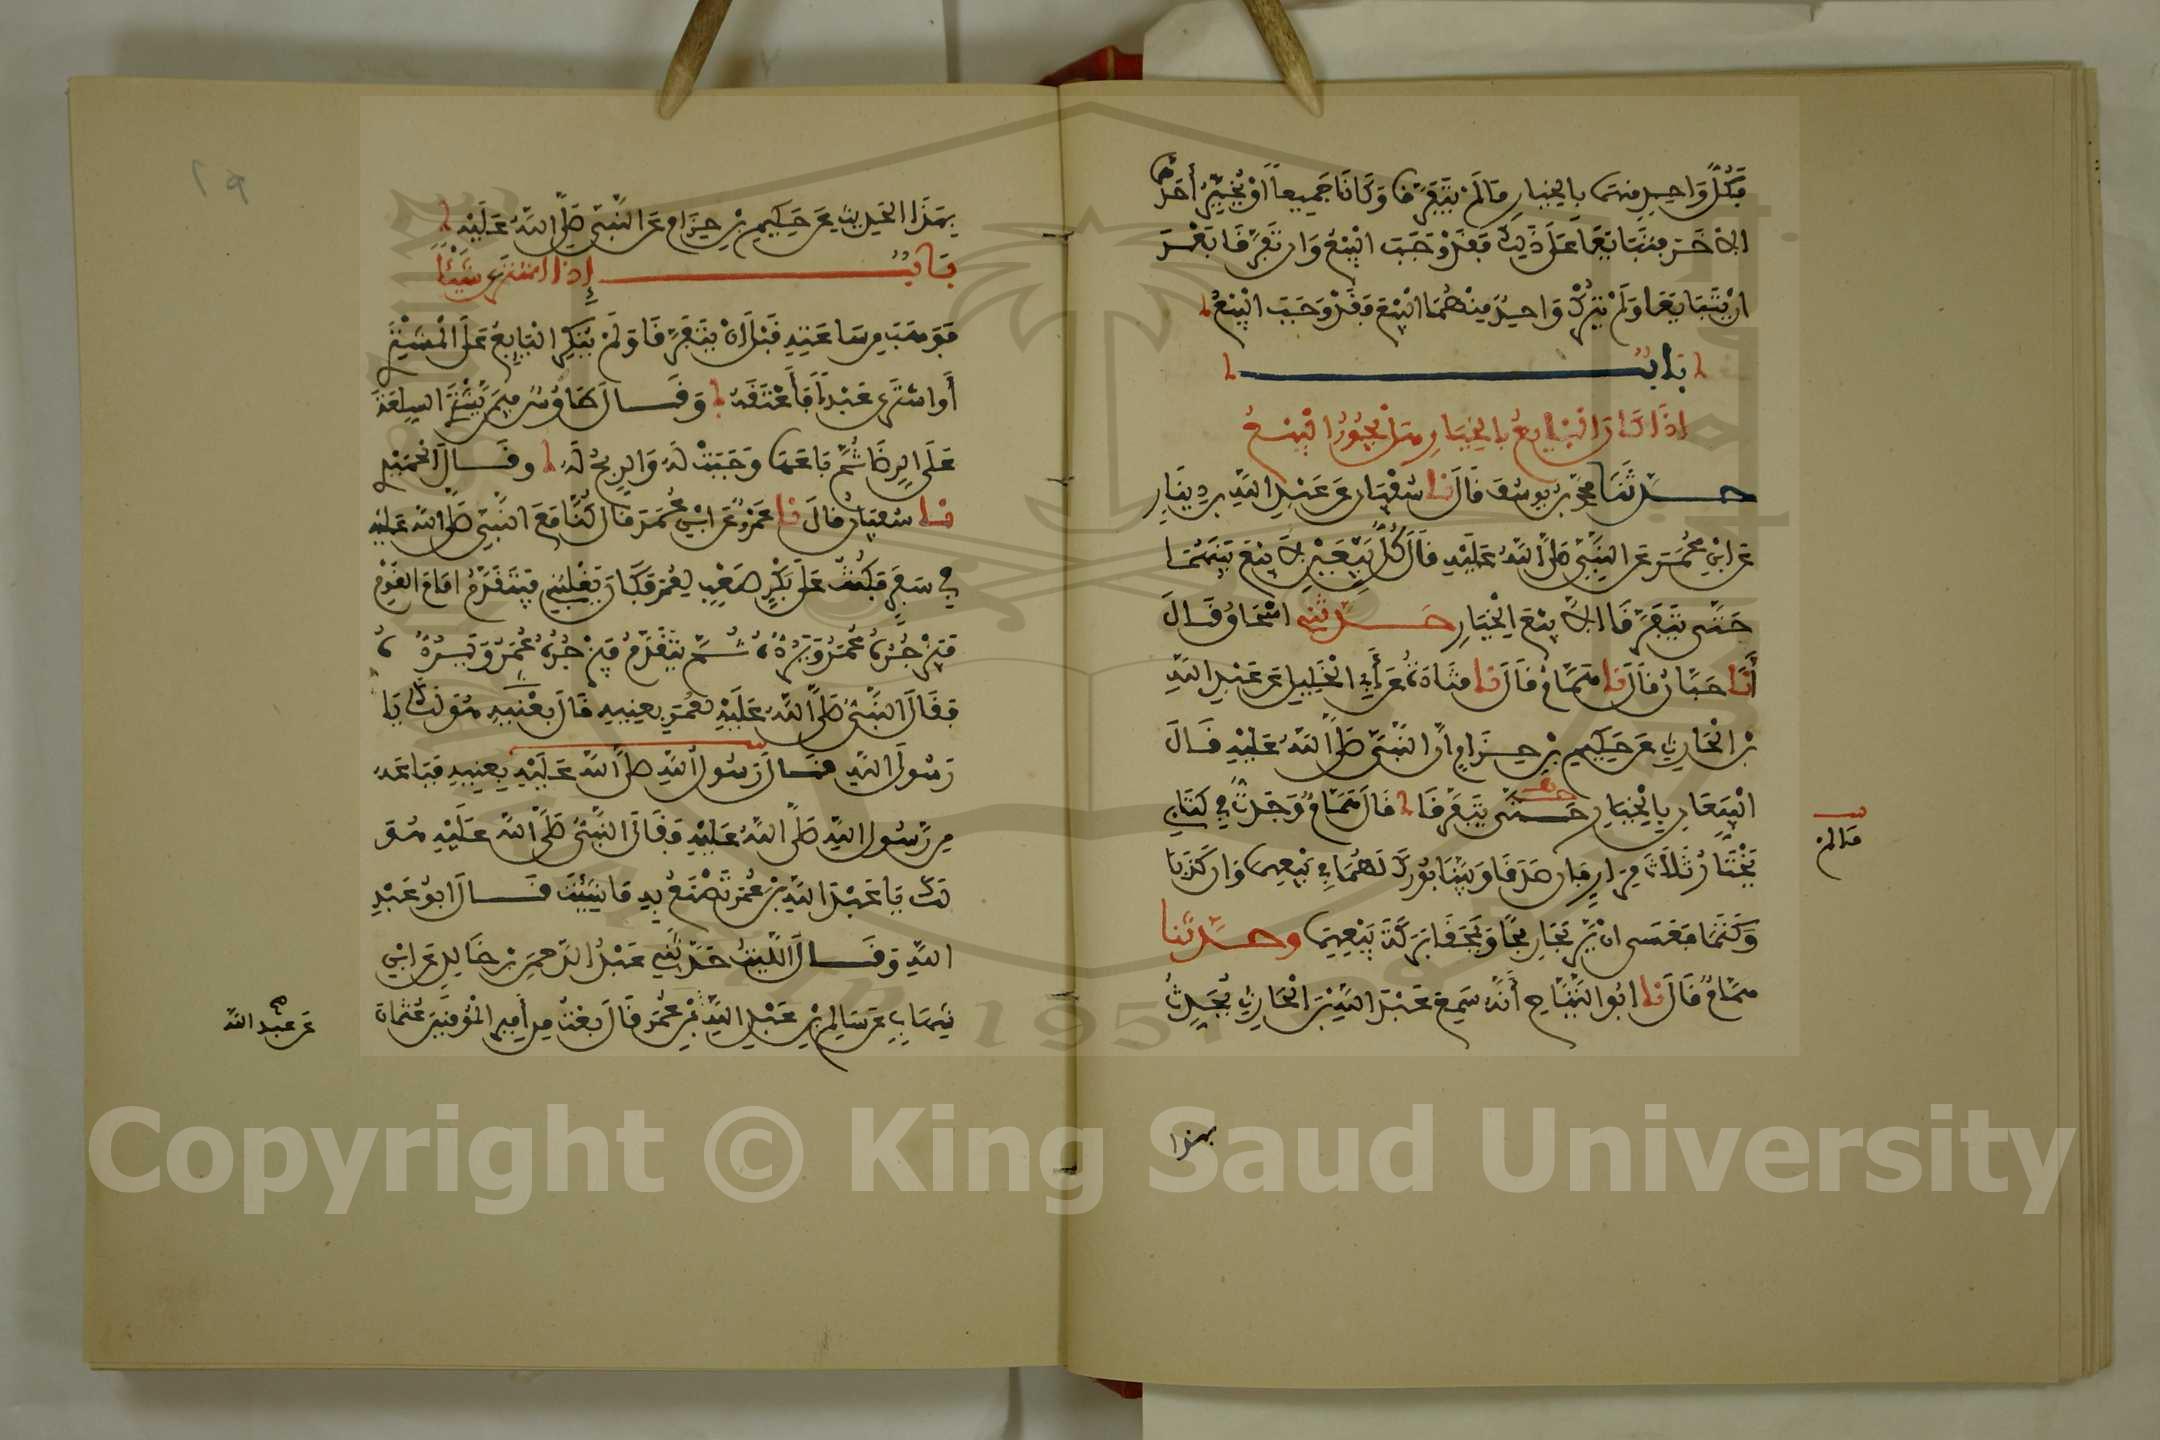 فَكُلُّ وَاحِدٍ مِنهمَا بِالخِيارِ مَا لَمْ يَتَفَرَّقَا وَكَانَا جَمِيعاً أَوْ يُخَيِّرُ أَحَدُهُمَا
الاخَرَ فَتَبَايَعَا عَلَى ذَلِكَ فَقَدْ وَجَبَ الْبَيْعُ وَإِن تَفَرَّقَا بَعْدَ
ان يَتَبَايَعَا وَلَمْ يَتْرُكْ وَاحِدٌ مِنْهُمَا الْبَيْعَ فَقَدْ وَجَبَ الْبَيْعُ
بَابُ
إِذَا كَانَ الْبَايِعُ بِالْخِيَارِ هَلْ يَجُوزُ الْبَيْعُ
حَدَّثَنَا محمد بن يوسُفَ قَالَ نا سُفْيَان عَن عَبْدِ اللهِ بن دِينَارٍ
عَن ابْنِ عُمَرَ عَنِ النَّبِيِّ صَلَّى اللهُ عَلَيْهِ قَالَ كُلُّ بَيِّعَيْنِ لَا بَيْعَ بَيْنَهُمَا
حَتَّى يَتَفَرَّقَا إِلَّا بَيْعَ الْخِيَارِ حَدَّثَنِي اسْحَاقُ قَالَ
أَنَا حَبَّانُ قَالَ نَا هَمَّامٌ قَالَ نَا قَتَادَةُ عَن أَبِي الْخَلِيلِ عَن عَبْدِ اللهِ
بْنِ الْحَارِثِ عَن حَكِيمِ بْنِ حِزَامٍ أَنَّ النَّبِيَّ صَلَّى اللهُ عَلَيْهِ قَالَ
الْبَيِّعَانِ بِالْخِيَارِ حَتَّى يَتَفَرَّقَا قَالَ هَمَّامٌ وَجَدْتُ فِي كِتَابِي
مَا لَمْ
يَخْتَارُ ثَلَاثَ مِرَارٍ فَإِن صَدَقَا وَبَيَّنَا بُورِكَ لَهُمَا فِي بَيْعِهِمَا وَإِن كَذَبَا
وَكَتَمَا فَعَسَى انْ يَرْبَحَا رِبْحًا وَيُمْحَقَا بَرَكَةَ بَيْعِهِمَا وحَدَّثَنَا
هَمَّامٌ قَالَ نَا ابُو التَّيَّاحِ أَنَّهُ سَمِعَ عَبْدَ اللهِ بْنَ الْحَارِثِ يُحَدِّثُ
بهذا
بِهَذَا الْحَدِيثِ عَن حَكِيمِ بْنِ حِزَامٍ عَنِ النَّبِيِّ صَلَّى اللهُ عَلَيْهِ
بَابُ إِذَا اشْتَرَى شَيْئاً
فَوَهَبَ مِن سَاعَتِهِ قَبْلَ انْ يَتَفَرَّقَا وَلَمْ يُنْكِرِ الْبَايِعُ عَلَى الْمُشْتَرِي
أَوِ اشْتَرَى عَبْداً فَأَعْتَقَهُ وَقَالَ طَاوُسٌ فِيمَن يَشْتَرِي السِّلْعَةَ
عَلَى الرِّضَا ثُمَّ بَاعَهَا وَجَبَتْ لَهُ وَالرِّبْحُ لَهُ وقَالَ الْحُمَيْدِي
نا سُفْيَانُ قَالَ نا عَمْرٌو عَن ابْنِ عُمَرَ قَالَ كُنَّا مَعَ النَّبِيِّ صَلَّى اللهُ عَلَيْهِ
فِي سَفَرٍ فَكُنْتُ عَلَى بَكْرٍ صَعْبٍ لِعُمَرَ فَكَانَ يَغْلِبُنِي فَيَتَقَدَّمُ امَامَ الْقَوْمِ
فَيَزْجُرُهُ عُمَرُ وَيَرُدُّهُ ثُمَّ يَتَقَدَّمُ فَيَزْجُرُهُ عُمَرُ وَيَرُدُّهُ
فَقَالَ النَّبِيُّ صَلَّى اللهُ عَلَيْهِ لِعُمَرَ بِعْنِيهِ قَالَ هُوَ لَكَ يَا
رَسُولَ اللهِ قَالَ رَسُولُ اللهِ صَلَّى اللهُ عَلَيْهِ بِعْنِيهِ فَبَاعَهُ
مِن رَسُولِ اللهِ صَلَّى اللهُ عَلَيْهِ فَقَالَ النَّبِيُّ صَلَّى اللهُ عَلَيْهِ هُوَ
لَكَ يَا عَبْدَ اللهِ بْنَ عُمَرَ تَصْنَعُ بِهِ مَا شِئْتَ قَالَ ابُو عَبْدِ
اللهِ وَقَالَ اللَّيْثُ حَدَّثَنِي عَبْدُ الرَّحمنِ بْن خَالِدٍ عَن ابْنِ
شِهَابٍ عَن سَالِمِ بْنِ عَبْدِ اللهِ بْنِ عُمَرَ قَالَ بِعْتُ مِن أَمِيرِ الْمُؤْمِنِينَ عُثْمَانَ
عَن عبد الله
٢٩
1957
Copyright © King Saud University